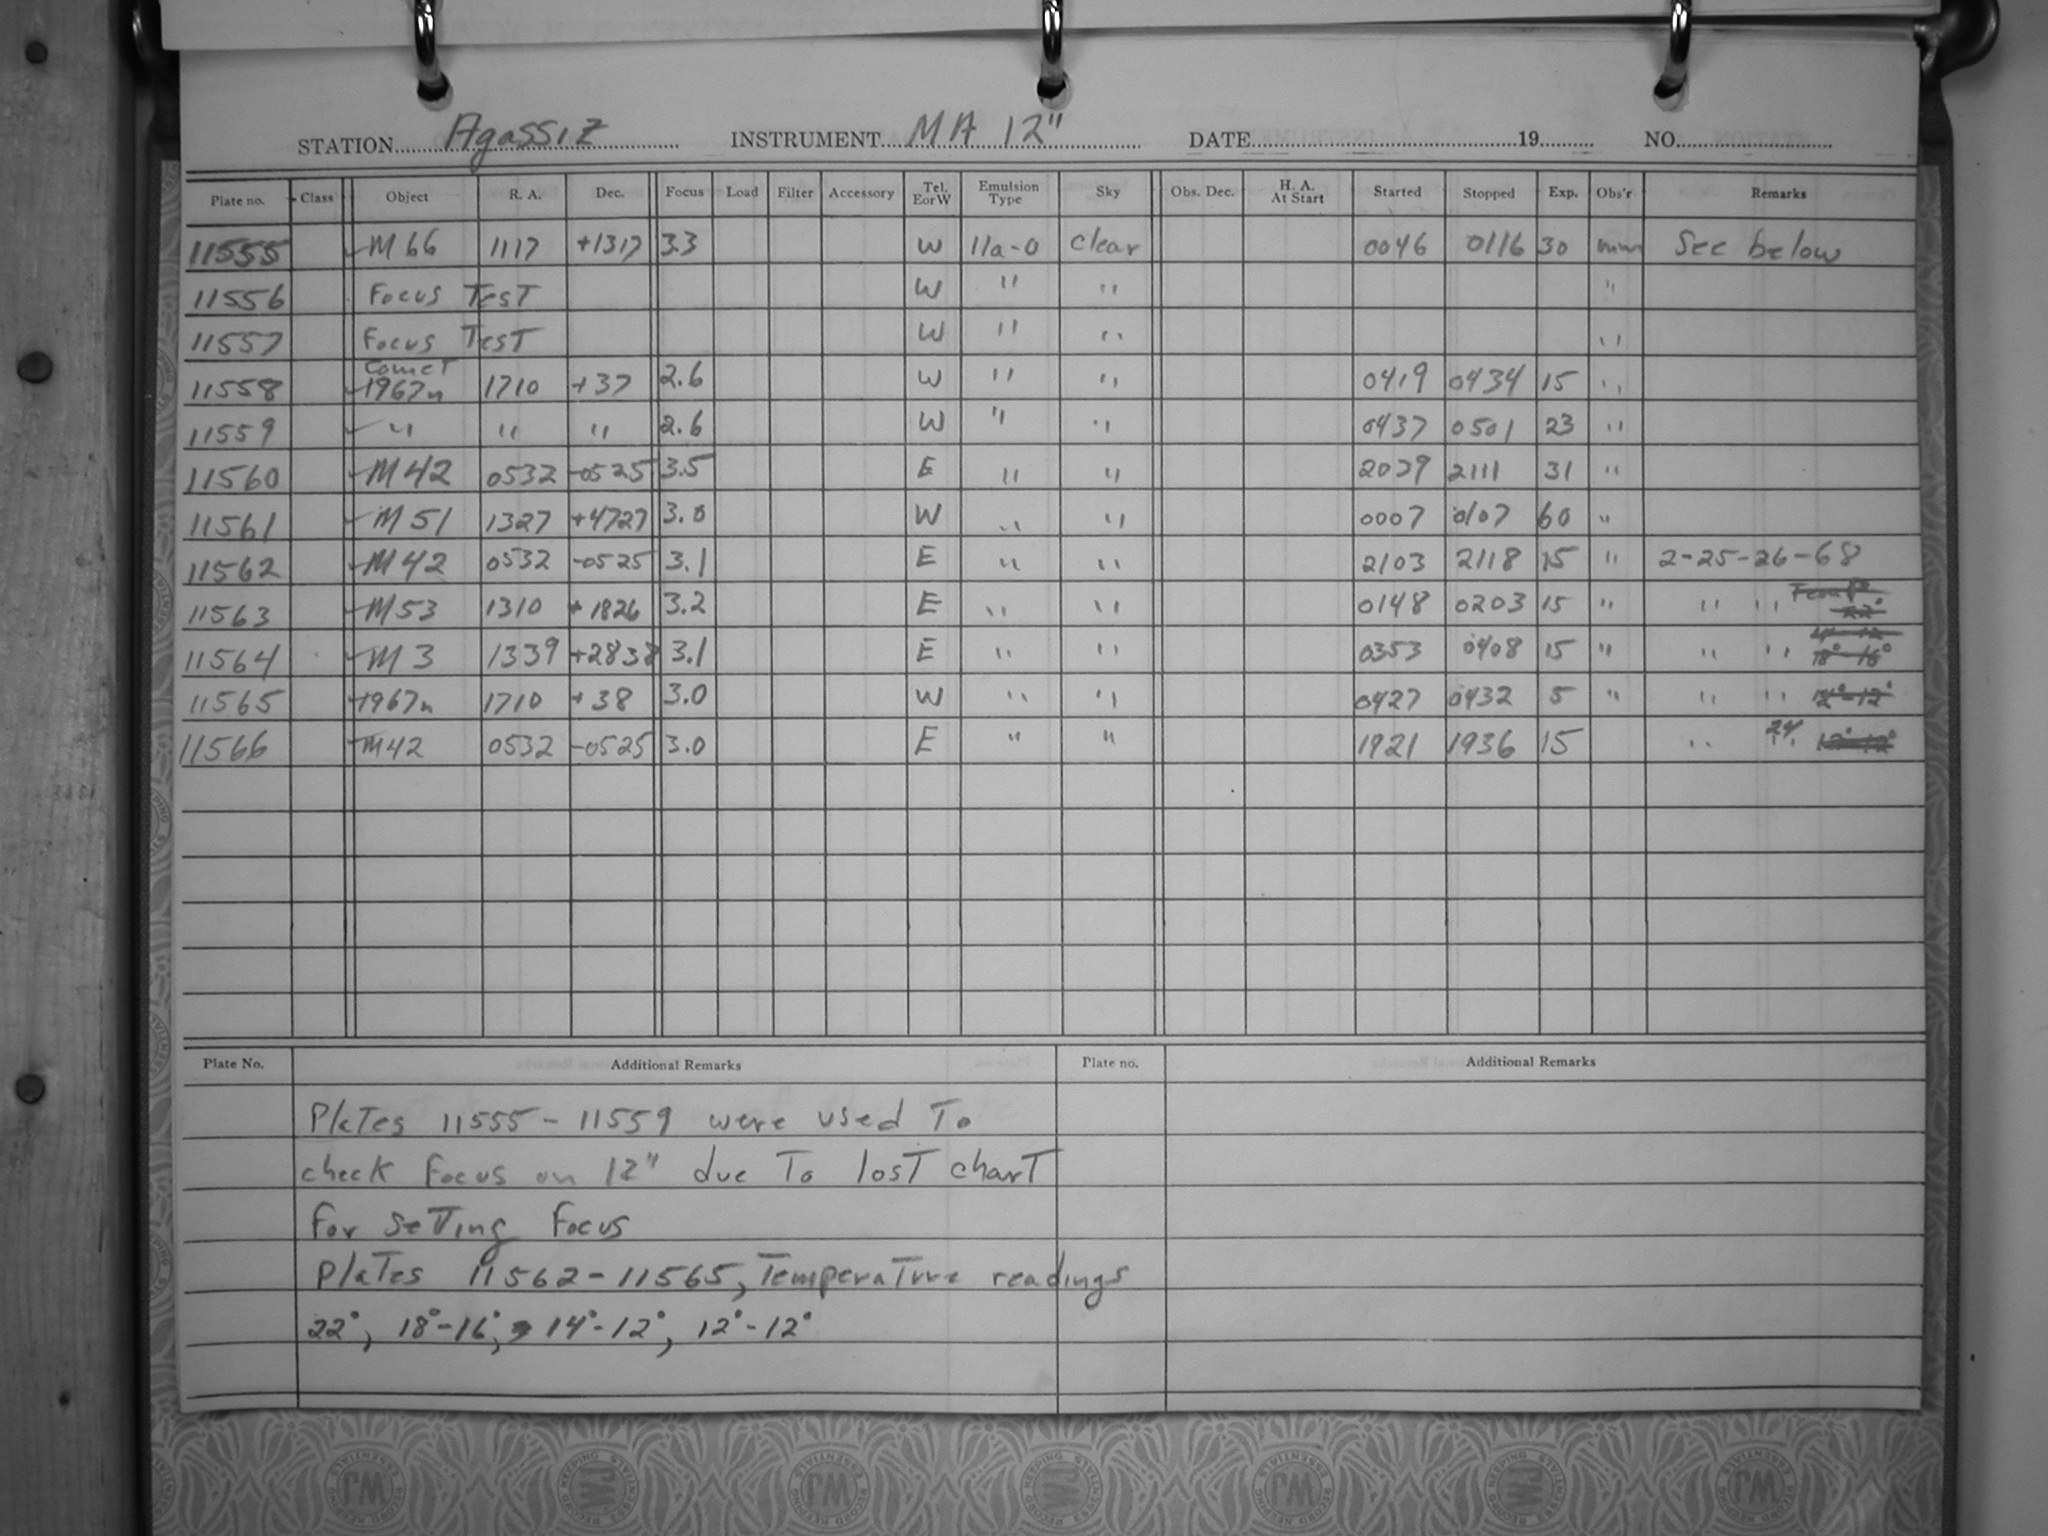 STATION Agassiz INSTRUMENT MA 12" DATE 19 NO.
Plate no. Class Object R. A. Dec. Focus Load Filter Accessory Tel. E or W Emulsion Type Sky Obs. Dec. H. A. At Start Started Stopped Exp. Obs'r Remarks
11555 M 66 1117 +1317 3.3 W 11a-0 clear 0046 0116 30 mm See below
11556 Focus Test W " " "
11557 Focus Test W " " "
11558 Comet 1967n 1710 +37 2.6 W " " 0419 0434 15 "
11559 " " " 2.6 W " " 0437 0501 23 "
11560 M 42 0532 -0525 3.5 E " " 2039 2111 31 "
11561 M 51 1327 +4727 3.0 W " " 0007 0107 60 "
11562 M 42 0532 -0525 3.1 E " " 2103 2118 15 " 2-25-26-68
11563 M 53 1310 +1826 3.2 E " " 0148 0203 15 " " " Temp 22°
11564 M 3 1339 +2838 3.1 E " " 0353 0408 15 " " " 18°-16°
11565 1967n 1710 +38 3.0 W " " 0427 0432 5 " " " 12°-12°
11566 M42 0532 -0525 3.0 E " " 1921 1936 15 " 24 " 12°-12°
Plate No. Additional Remarks Plate no. Additional Remarks
Plates 11555-11559 were used To
check focus on 12" due To lost chart
for setting focus
Plates 11562-11565, Temperature readings
22°, 18°-16°, 14°-12°, 12°-12°